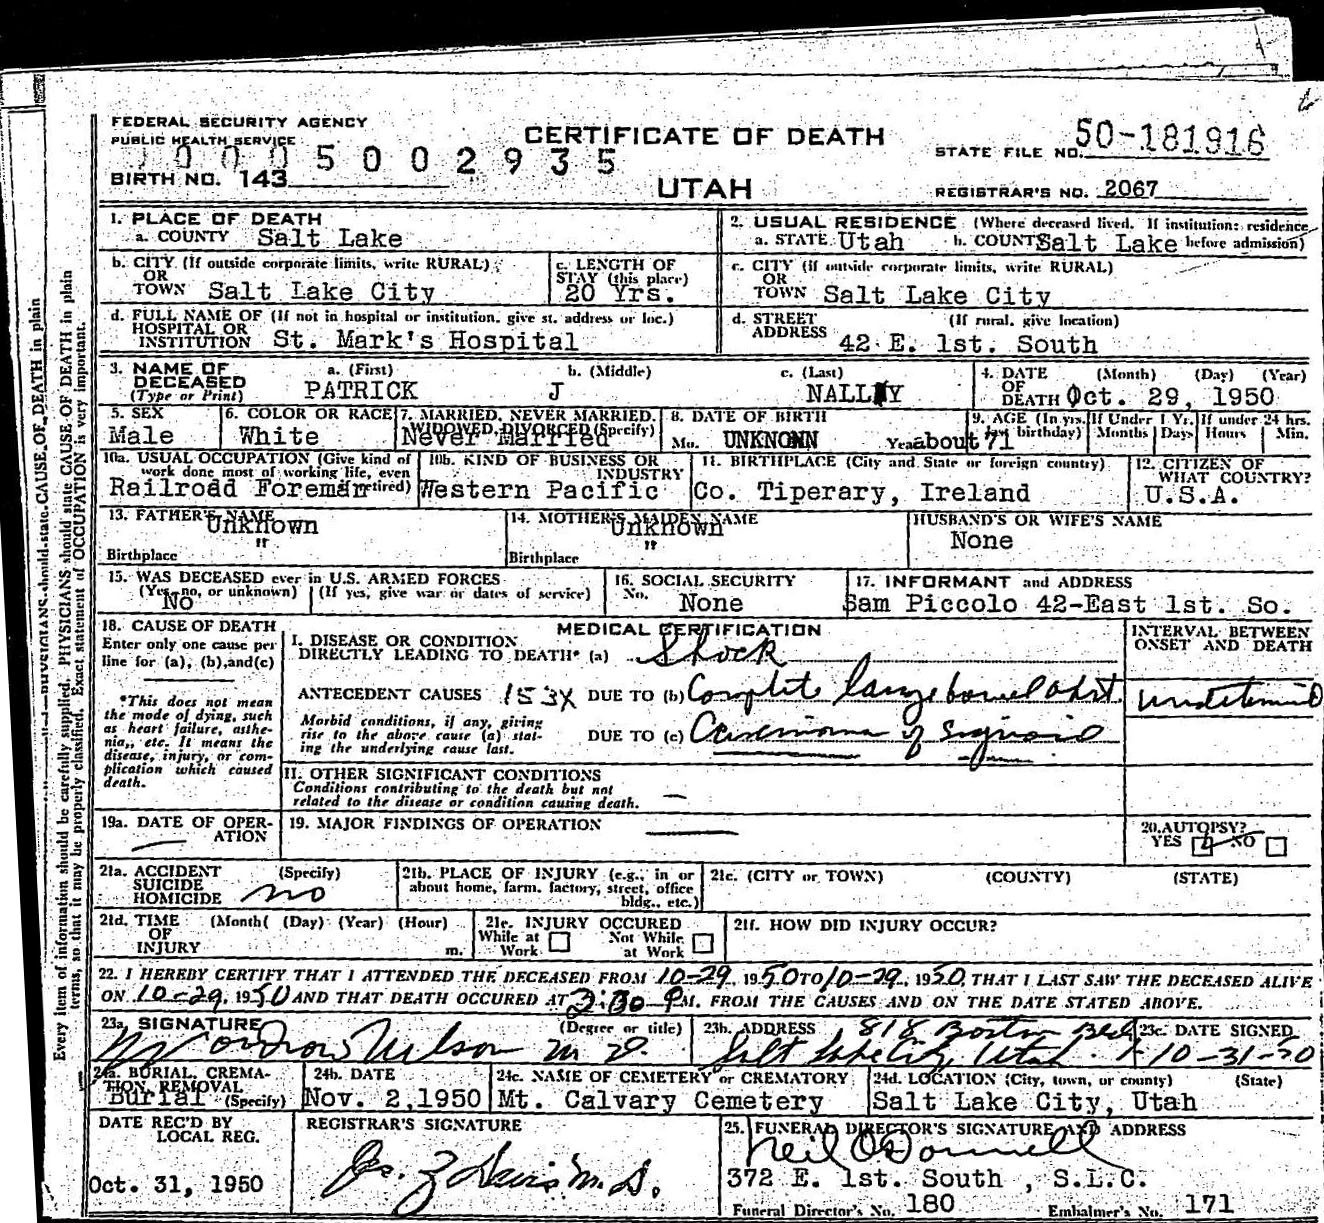 FEDERAL SECURITY AGENCY
PUBLIC HEALTH SERVICE
CERTIFICATE OF DEATH
STATE FILE NO. 50-181916
0005002935
BIRTH NO. 143
UTAH
REGISTRAR'S NO. 2067
1. PLACE OF DEATH
a. COUNTY Salt Lake
2. USUAL RESIDENCE (Where deceased lived. If institution: residence before admission)
a. STATE Utah b. COUNTY Salt Lake
b. CITY (If outside corporate limits, write RURAL)
OR
TOWN Salt Lake City
c. LENGTH OF
STAY (this place)
20 Yrs.
c. CITY (if outside corporate limits, write RURAL)
OR
TOWN Salt Lake City
d. FULL NAME OF (If not in hospital or institution, give st. address or loc.)
HOSPITAL OR
INSTITUTION St. Mark's Hospital
d. STREET (If rural, give location)
ADDRESS 42 E. 1st. South
3. NAME OF
DECEASED
(Type or Print)
a. (First) b. (Middle) c. (Last)
PATRICK J NALLY
4. DATE (Month) (Day) (Year)
OF
DEATH Oct. 29, 1950
5. SEX
Male
6. COLOR OR RACE
White
7. MARRIED, NEVER MARRIED,
WIDOWED, DIVORCED (Specify)
Never Married
8. DATE OF BIRTH
Mo. UNKNONN Year
9. AGE (In yrs. birthday)
about 71
If Under 1 Yr.
Months Days
If under 24 hrs.
Hours Min.
10a. USUAL OCCUPATION (Give kind of
work done most of working life, even
retired)
Railroad Foreman
10b. KIND OF BUSINESS OR
INDUSTRY
Western Pacific
11. BIRTHPLACE (City and State or foreign country)
Co. Tiperary, Ireland
12. CITIZEN OF
WHAT COUNTRY?
U.S.A.
13. FATHER'S NAME
Unknown
"
Birthplace
14. MOTHER'S MAIDEN NAME
Unknown
"
Birthplace
HUSBAND'S OR WIFE'S NAME
None
15. WAS DECEASED ever in U.S. ARMED FORCES
(Yes, no, or unknown) (If yes, give war or dates of service)
No
16. SOCIAL SECURITY
No. None
17. INFORMANT and ADDRESS
Sam Piccolo 42-East 1st. So.
18. CAUSE OF DEATH
Enter only one cause per
line for (a), (b), and (c)
*This does not mean
the mode of dying, such
as heart failure, asthe-
nia,, etc. It means the
disease, injury, or com-
plication which caused
death.
MEDICAL CERTIFICATION
I. DISEASE OR CONDITION
DIRECTLY LEADING TO DEATH* (a) Shock
ANTECEDENT CAUSES 153X DUE TO (b) Complete large bowel obst.
Morbid conditions, if any, giving
rise to the above cause (a) stat-
ing the underlying cause last.
DUE TO (c) Carcinoma of Sigmoid
INTERVAL BETWEEN
ONSET AND DEATH
II. OTHER SIGNIFICANT CONDITIONS
Conditions contributing to the death but not
related to the disease or condition causing death. —
19a. DATE OF OPER-
ATION —
19. MAJOR FINDINGS OF OPERATION —
20. AUTOPSY?
YES NO
21a. ACCIDENT (Specify)
SUICIDE
HOMICIDE no
21b. PLACE OF INJURY (e.g., in or
about home, farm, factory, street, office
bldg., etc.)
21c. (CITY or TOWN) (COUNTY) (STATE)
21d. TIME (Month( (Day) (Year) (Hour)
OF
INJURY m.
21e. INJURY OCCURED
While at Work
Not While at Work
21f. HOW DID INJURY OCCUR?
22. I HEREBY CERTIFY THAT I ATTENDED THE DECEASED FROM 10-29, 1950 TO 10-29, 1950, THAT I LAST SAW THE DECEASED ALIVE
ON 10-29, 1950 AND THAT DEATH OCCURED AT 2:30 P M. FROM THE CAUSES AND ON THE DATE STATED ABOVE.
23a. SIGNATURE (Degree or title)
Woodrow Nelson M.D.
23b. ADDRESS 818 Boston Bldg
Salt Lake City Utah
23c. DATE SIGNED
10-31-50
24a. BURIAL, CREMA-
TION, REMOVAL
(Specify)
Burial
24b. DATE
Nov. 2, 1950
24c. NAME OF CEMETERY or CREMATORY
Mt. Calvary Cemetery
24d. LOCATION (City, town, or county) (State)
Salt Lake City, Utah
DATE REC'D BY
LOCAL REG.
Oct. 31, 1950
REGISTRAR'S SIGNATURE
25. FUNERAL DIRECTOR'S SIGNATURE AND ADDRESS
Neil O'Donnell
372 E. 1st. South , S.L.C.
Funeral Director's No. 180 Embalmer's No. 171
Every item of information should be carefully supplied. PHYSICIANS should state CAUSE OF DEATH in plain
terms, so that it may be properly classified. Exact statement of OCCUPATION is very important.